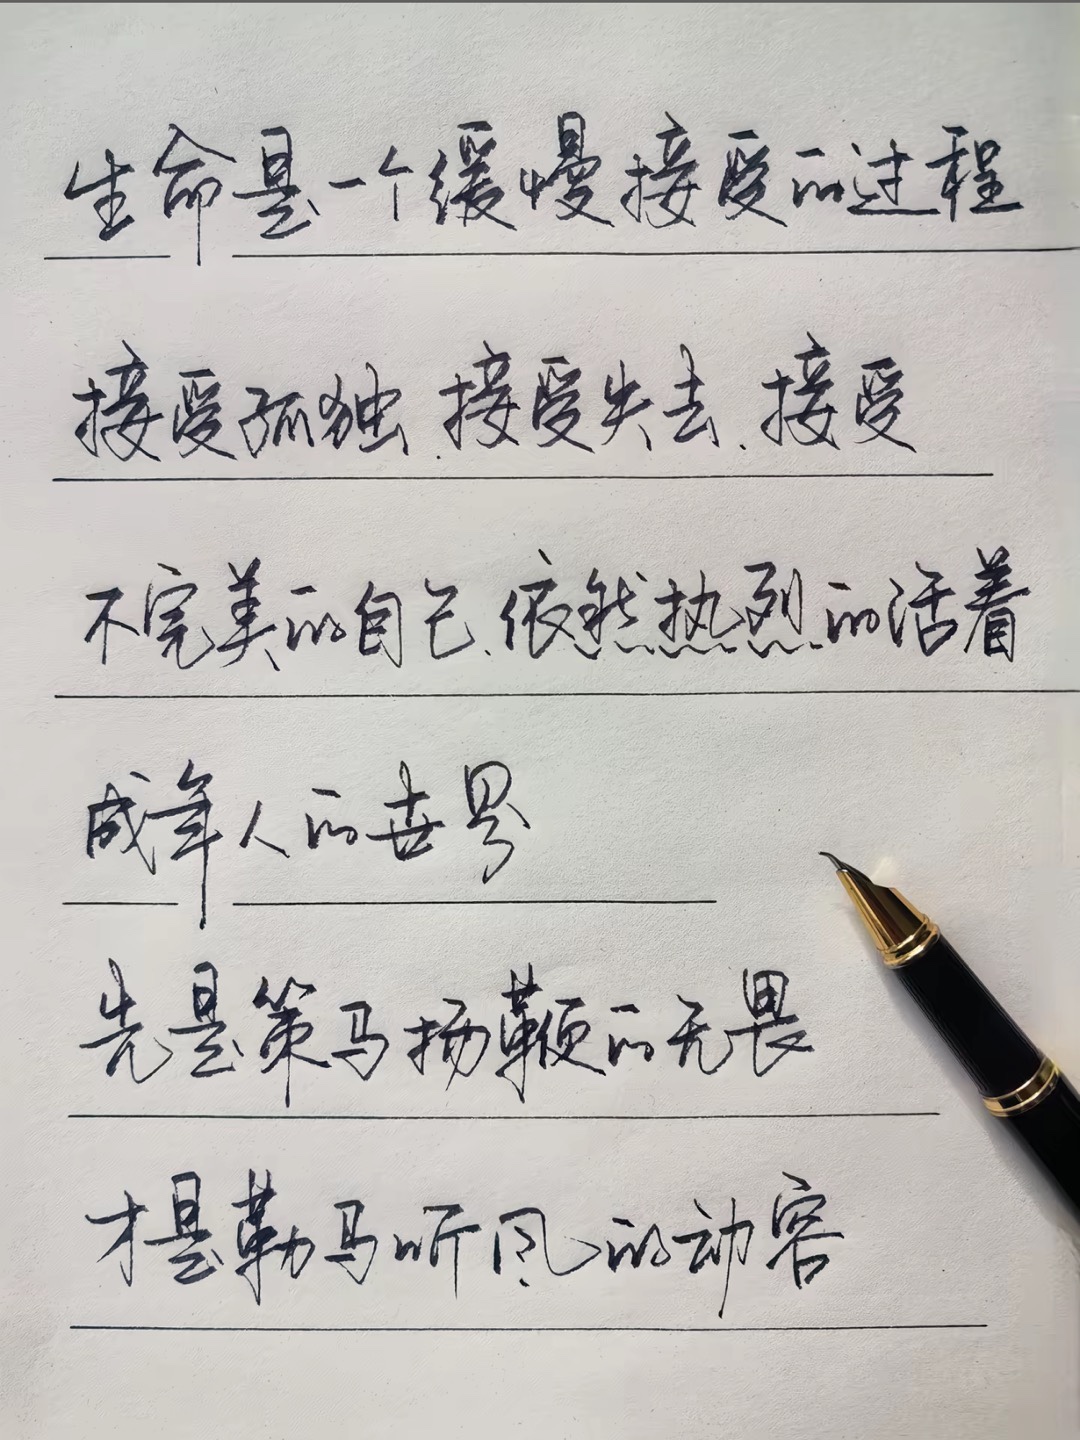 生命是一个缓慢接受的过程
接受孤独、接受失去、接受
不完美的自己、依然热烈的活着
成年人的世界
先是策马扬鞭的无畏
才是勒马听风的动容